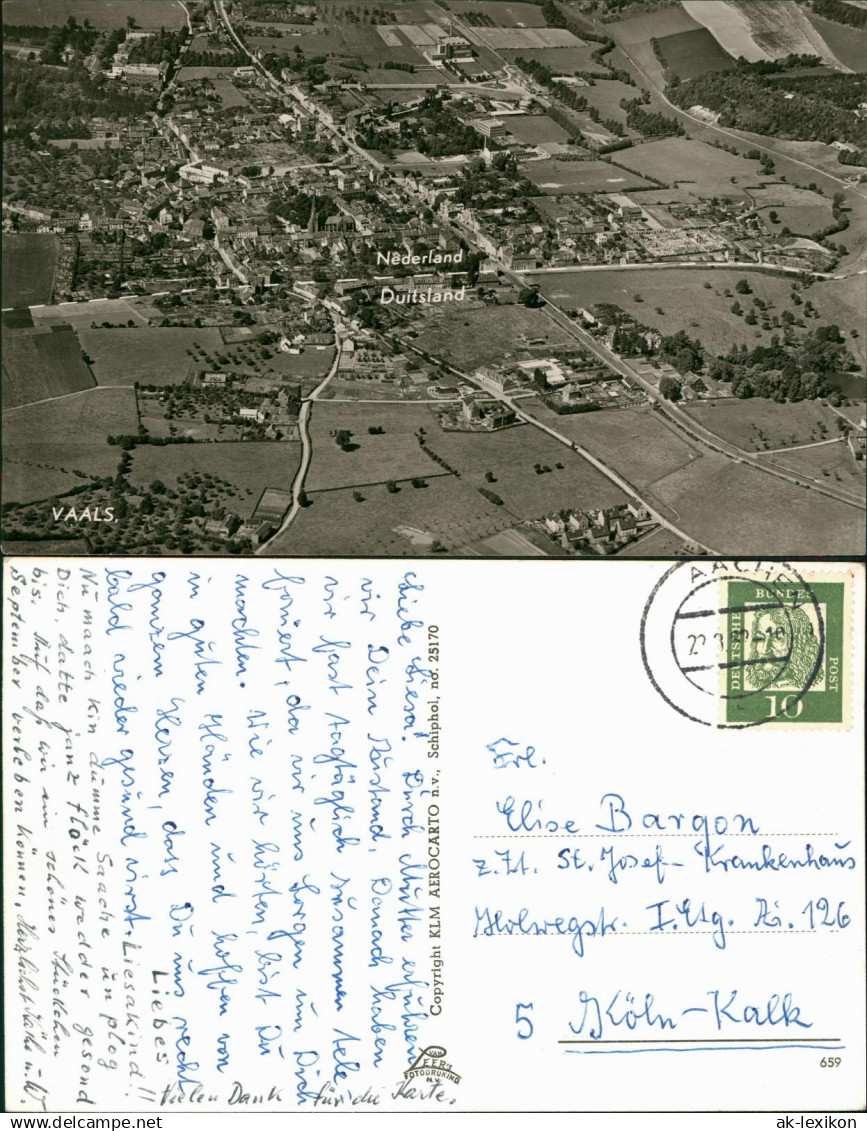 Nederland
Duitsland
VAALS.
Liebe Liesa! Durch Mutter erfuhren
wir Dein Zustand. Danach haben
wir fast tagtäglich zusammen tele-
foniert, da wir uns Sorgen um Dich
machten. Wie wir hörten, bist Du
in guten Händen und hoffen von
ganzem Herzen, dass Du uns recht
bald wieder gesund wirst.
Liebes Liesakind!!
Nu maach kin dumme Saache un plog
Dich, datte janz flöck wadder gesond
bis. Auf daß wir ein schönes Stückchen
September verleben können. Herzlichst
Vielen Dank für die Karte.
Copyright KLM AEROCARTO n.v., Schiphol, no. 25170
VAN LEER'S
FOTODRUKIND.
N.V.
AACHEN
DEUTSCHE BUNDESPOST
10
Frl.
Elise Bargon
z. Zt. St. Josef- Krankenhaus
Holwegstr. I. Etg. Zi. 126
5 Köln-Kalk
659
ak-lexikon.com